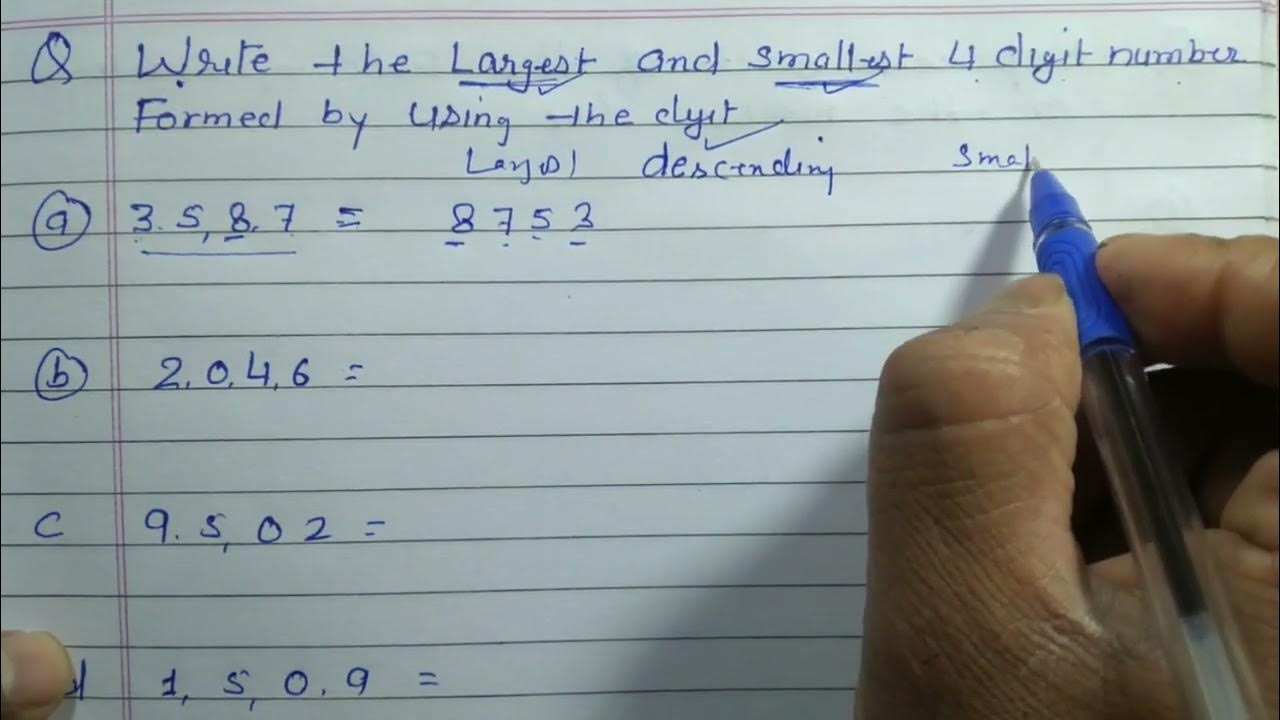 Q Write the Largest and Smallest 4 digit number
Formed by using the
descending Smal
(a) 3.5,8.7 = 8753
(b) 2.0.4,6 =
C 9.5,02 =
d 1,5,0.9 =